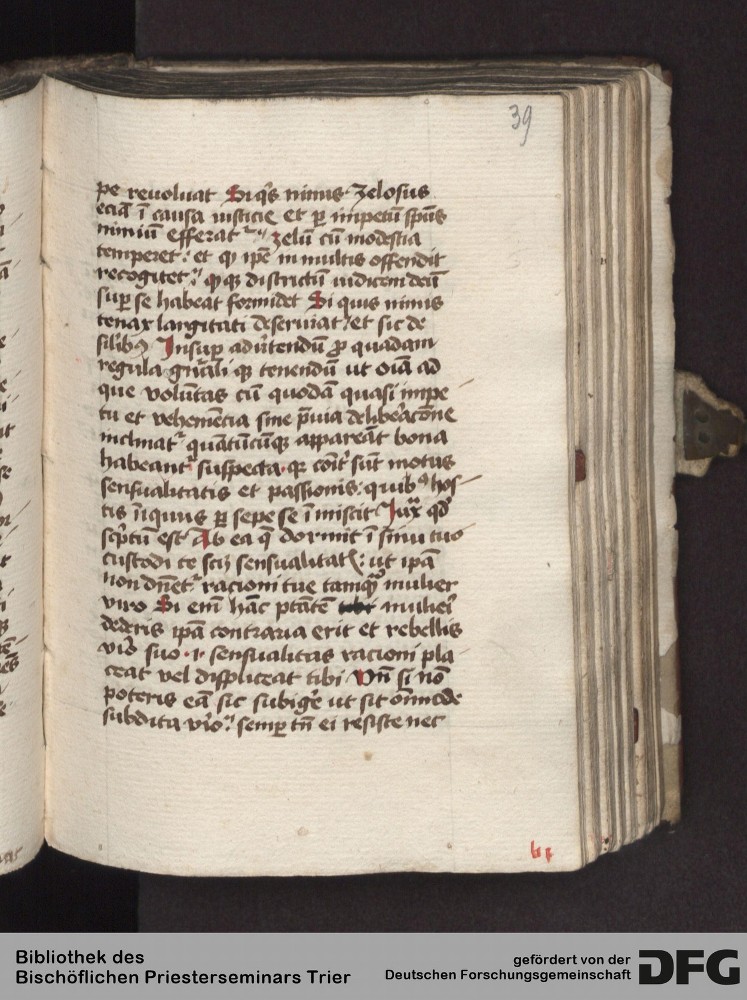 39
pe reuoluat Si q's nimis zelosus
eciā ī causa iusticie et ꝑ impetū spūs
nimiū efferatᷣ zelū cū modestia
temperet: et qꝫ ip̄e in multis offendit
recogitet: qꝫ districtū iudicem deū
suꝑ se habeat formidet Si quis nimis
tenax largitati deseruiat: et sic de
Insuꝑ aduʼtendū ꝓ quadam
regula gn̄ali qꝫ tenendū ut oīa ad
que volūtas cū quodā quasi impe
tu et vehemēcia sine p̄uia delibʼacōne
inclinatᷣ quātūcūqꝫ appareāt bona
habeantᷣ suspecta qꝛ cōitʼ sūt motus
sensualitatis et passionis: quibꝰ hos
tis īiquus ꝑ sepe se īmiscit Iux̄ qd̓
sc̄ptū est Ab ea q̄ dormit ī sinu tuo
custodi te scꝫ sensualitatꝭ: ut ip̄a
non dn̄etᷣ racioni tue tamqꝫ mulier
viro Si em̄ hāc ptātē mulieri
dederis ip̄a contraria erit et rebellis
viro suo .i. sensualitas racioni pla
ceat vel displiceat tibi Vn̄ si nō
poteris eā sic subigʼe ut sit omnīde
subdita vi'o: semꝑ tn̄ ei resiste nec
Bibliothek des
Bischöflichen Priesterseminars Trier
gefördert von der
Deutschen Forschungsgemeinschaft
DFG